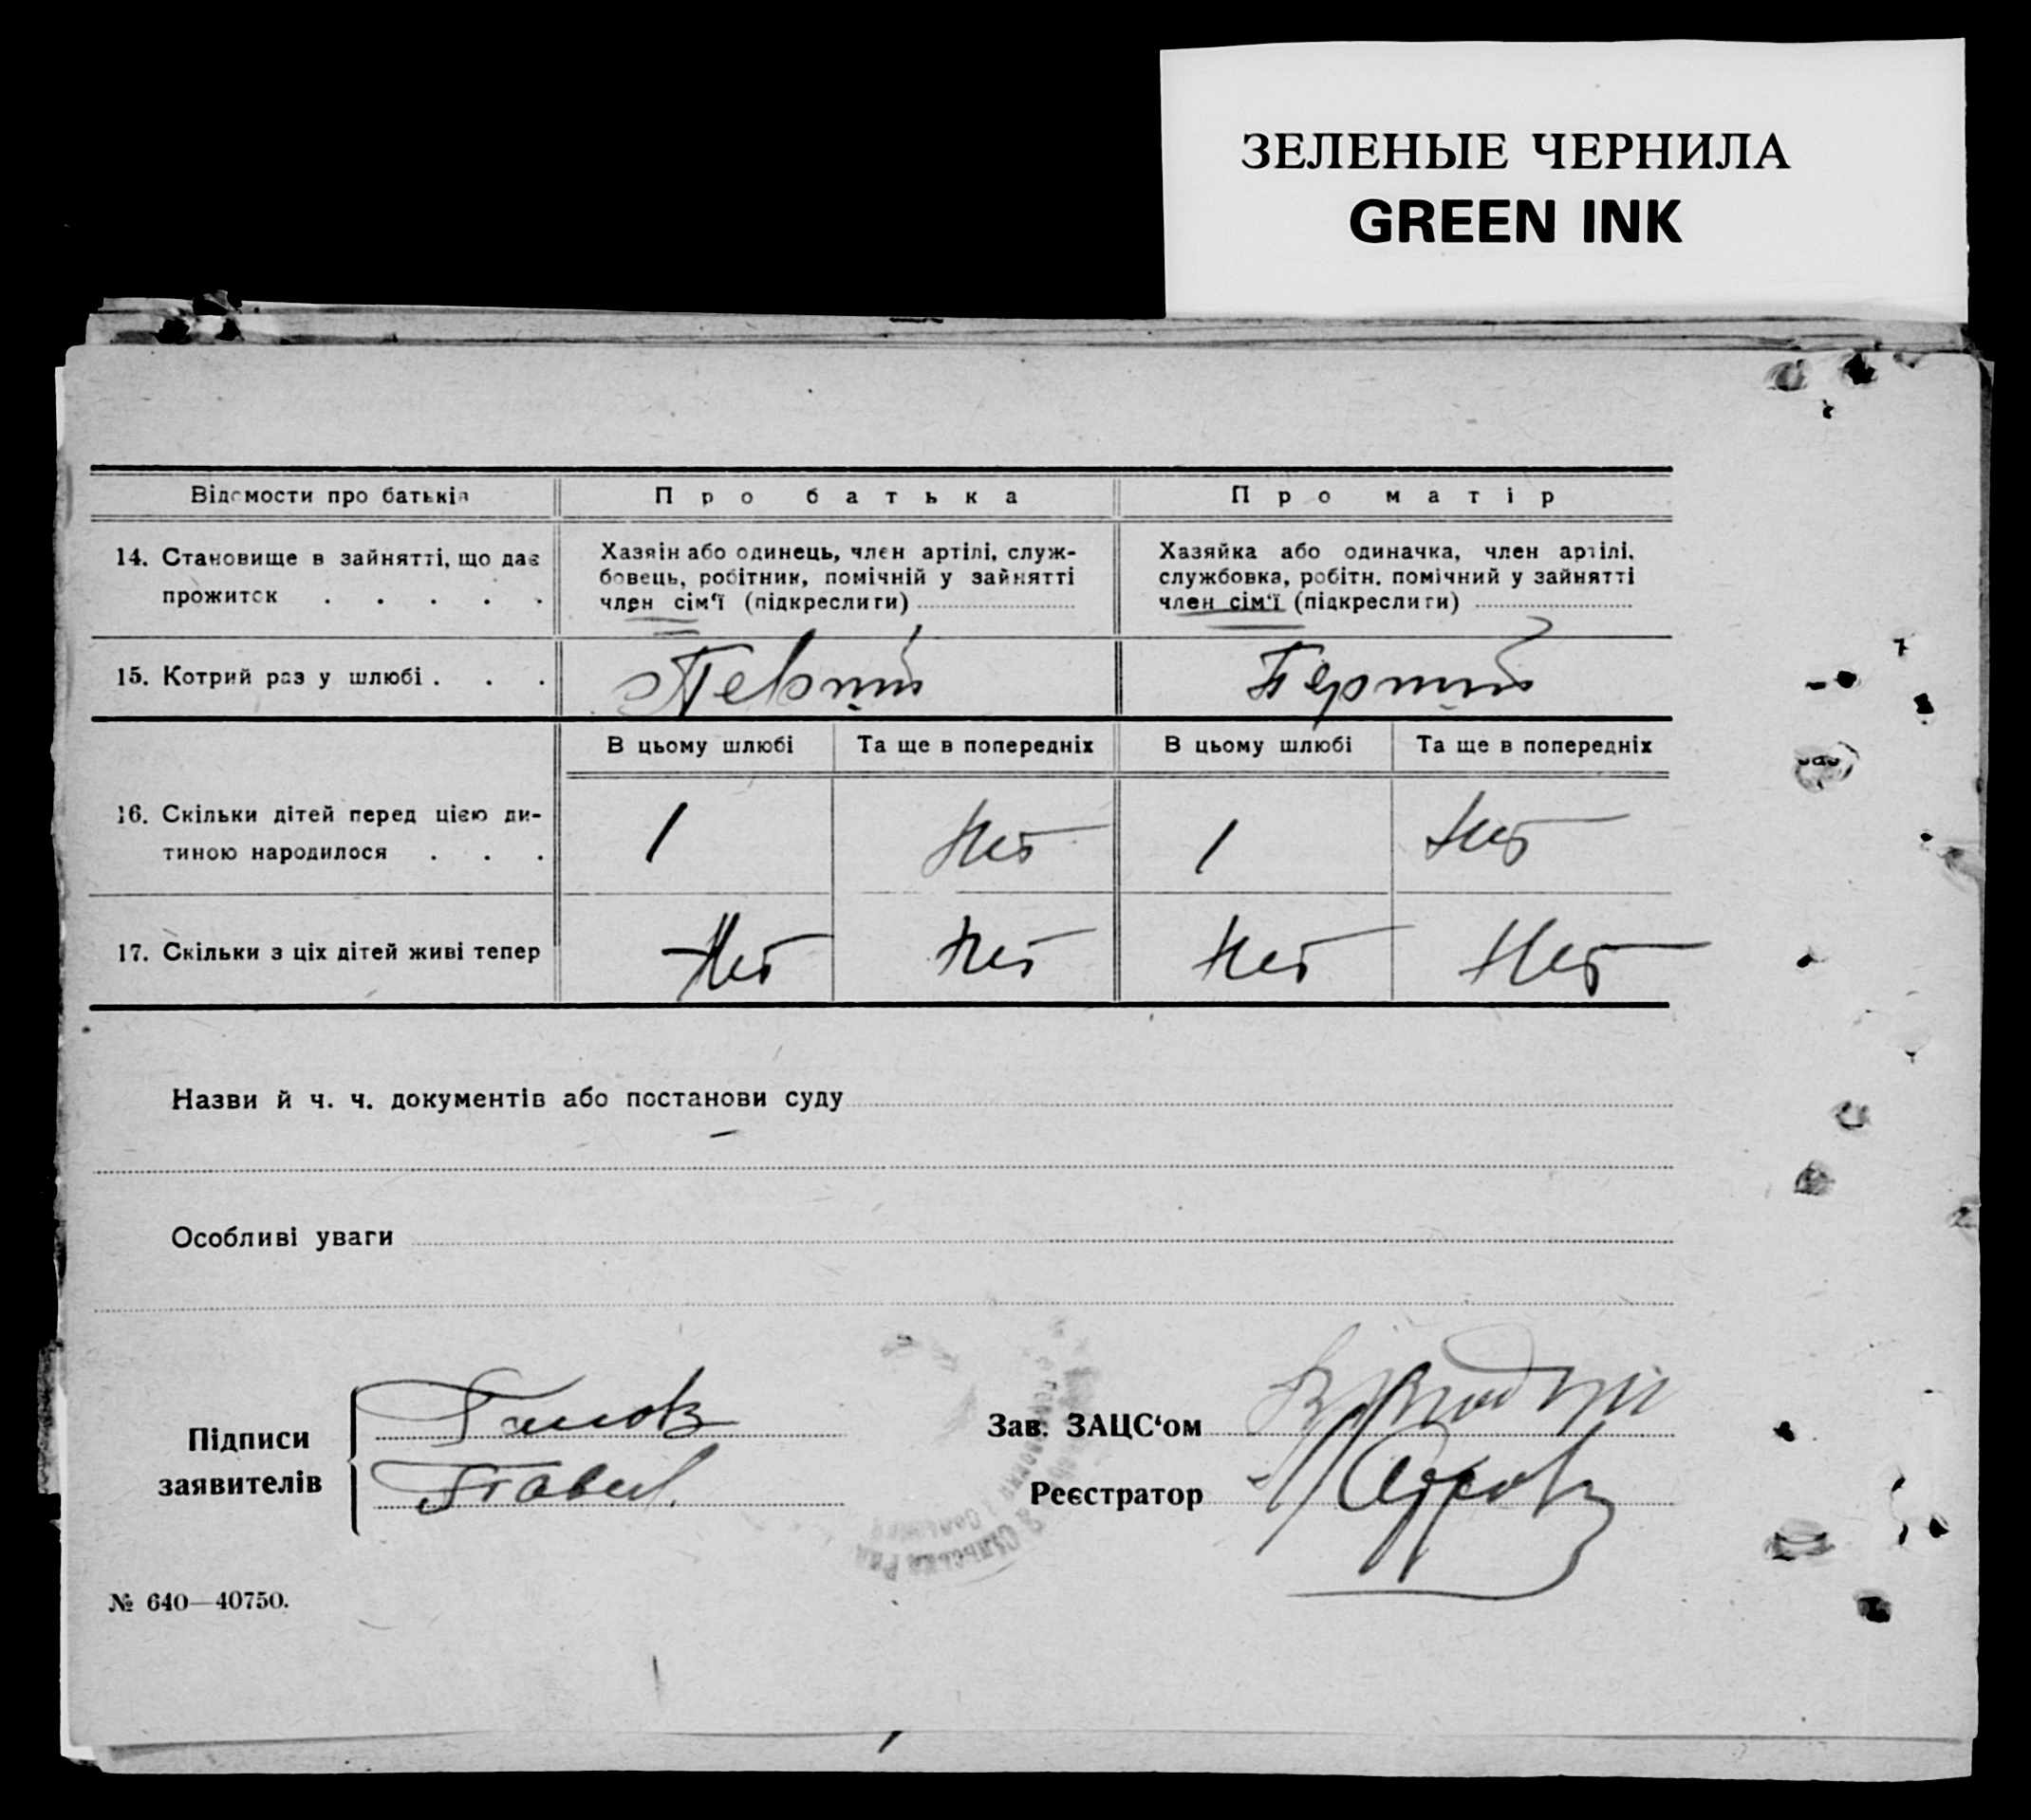 ЗЕЛЕНЫЕ ЧЕРНИЛА
GREEN INK
Відомости про батьків
Про батька
Про матір
14. Становище в зайнятті, що дає
прожиток . . . . .
Хазяін або одинець, член артілі, служ-
бовець, робітник, помічній у зайнятті
член сім‘ї (підкреслити)
Хазяйка або одиначка, член артілі,
службовка, робітн. помічний у зайнятті
член сім‘ї (підкреслити)
15. Котрий раз у шлюбі . . .
Первий
Первий
В цьому шлюбі
Та ще в попередніх
В цьому шлюбі
Та ще в попередніх
16. Скільки дітей перед цією ди-
тиною народилося . . .
1
Нет
1
Нет
17. Скільки з ціх дітей живі тепер
Нет
Нет
Нет
Нет
Назви й ч. ч. документів або постанови суду
Особливі уваги
Підписи
заявителів
Зав. ЗАЦС‘ом
Реєстратор
№ 640—40750.